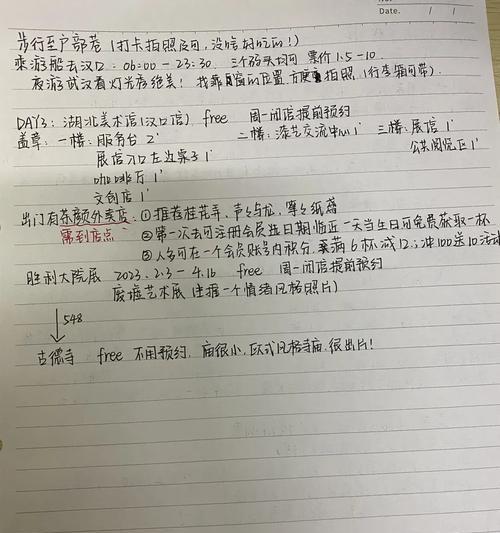 No.
Date. / /
步行至户部巷(打卡拍照即可,没啥好吃的!)
乘游船去汉口:06:00-23:30 三个码头均可 票价1.5-10
夜游武汉看灯光秀绝美! 找靠窗的位置,方便拍照(行李箱可带).
DAY3:湖北美术馆(汉口馆) free 周一闭馆提前预约
盖章:一楼:服务台 2' 二楼:漆艺交流中心1' 三楼:展馆1'
展馆门口左边桌子1' 公共阅览区1'
咖啡厅1'
文创店1'
出门有茶颜外卖店:①推荐桂花弄、声声乌龙、筝筝纸鸢
需到店点 ②第一次去可注册会员选日期临近一天当生日可免费获取一杯
③人多可在一个会员账号内积分,买满6杯减12;冲100送10活动
胜利大院展 2023.2.3-4.16 free 周一闭馆提前预约
废墟艺术展(生据一个情绪风格照片)
548
古德寺 free 不用预约,庙很小,欧式风格寺庙,很出片!